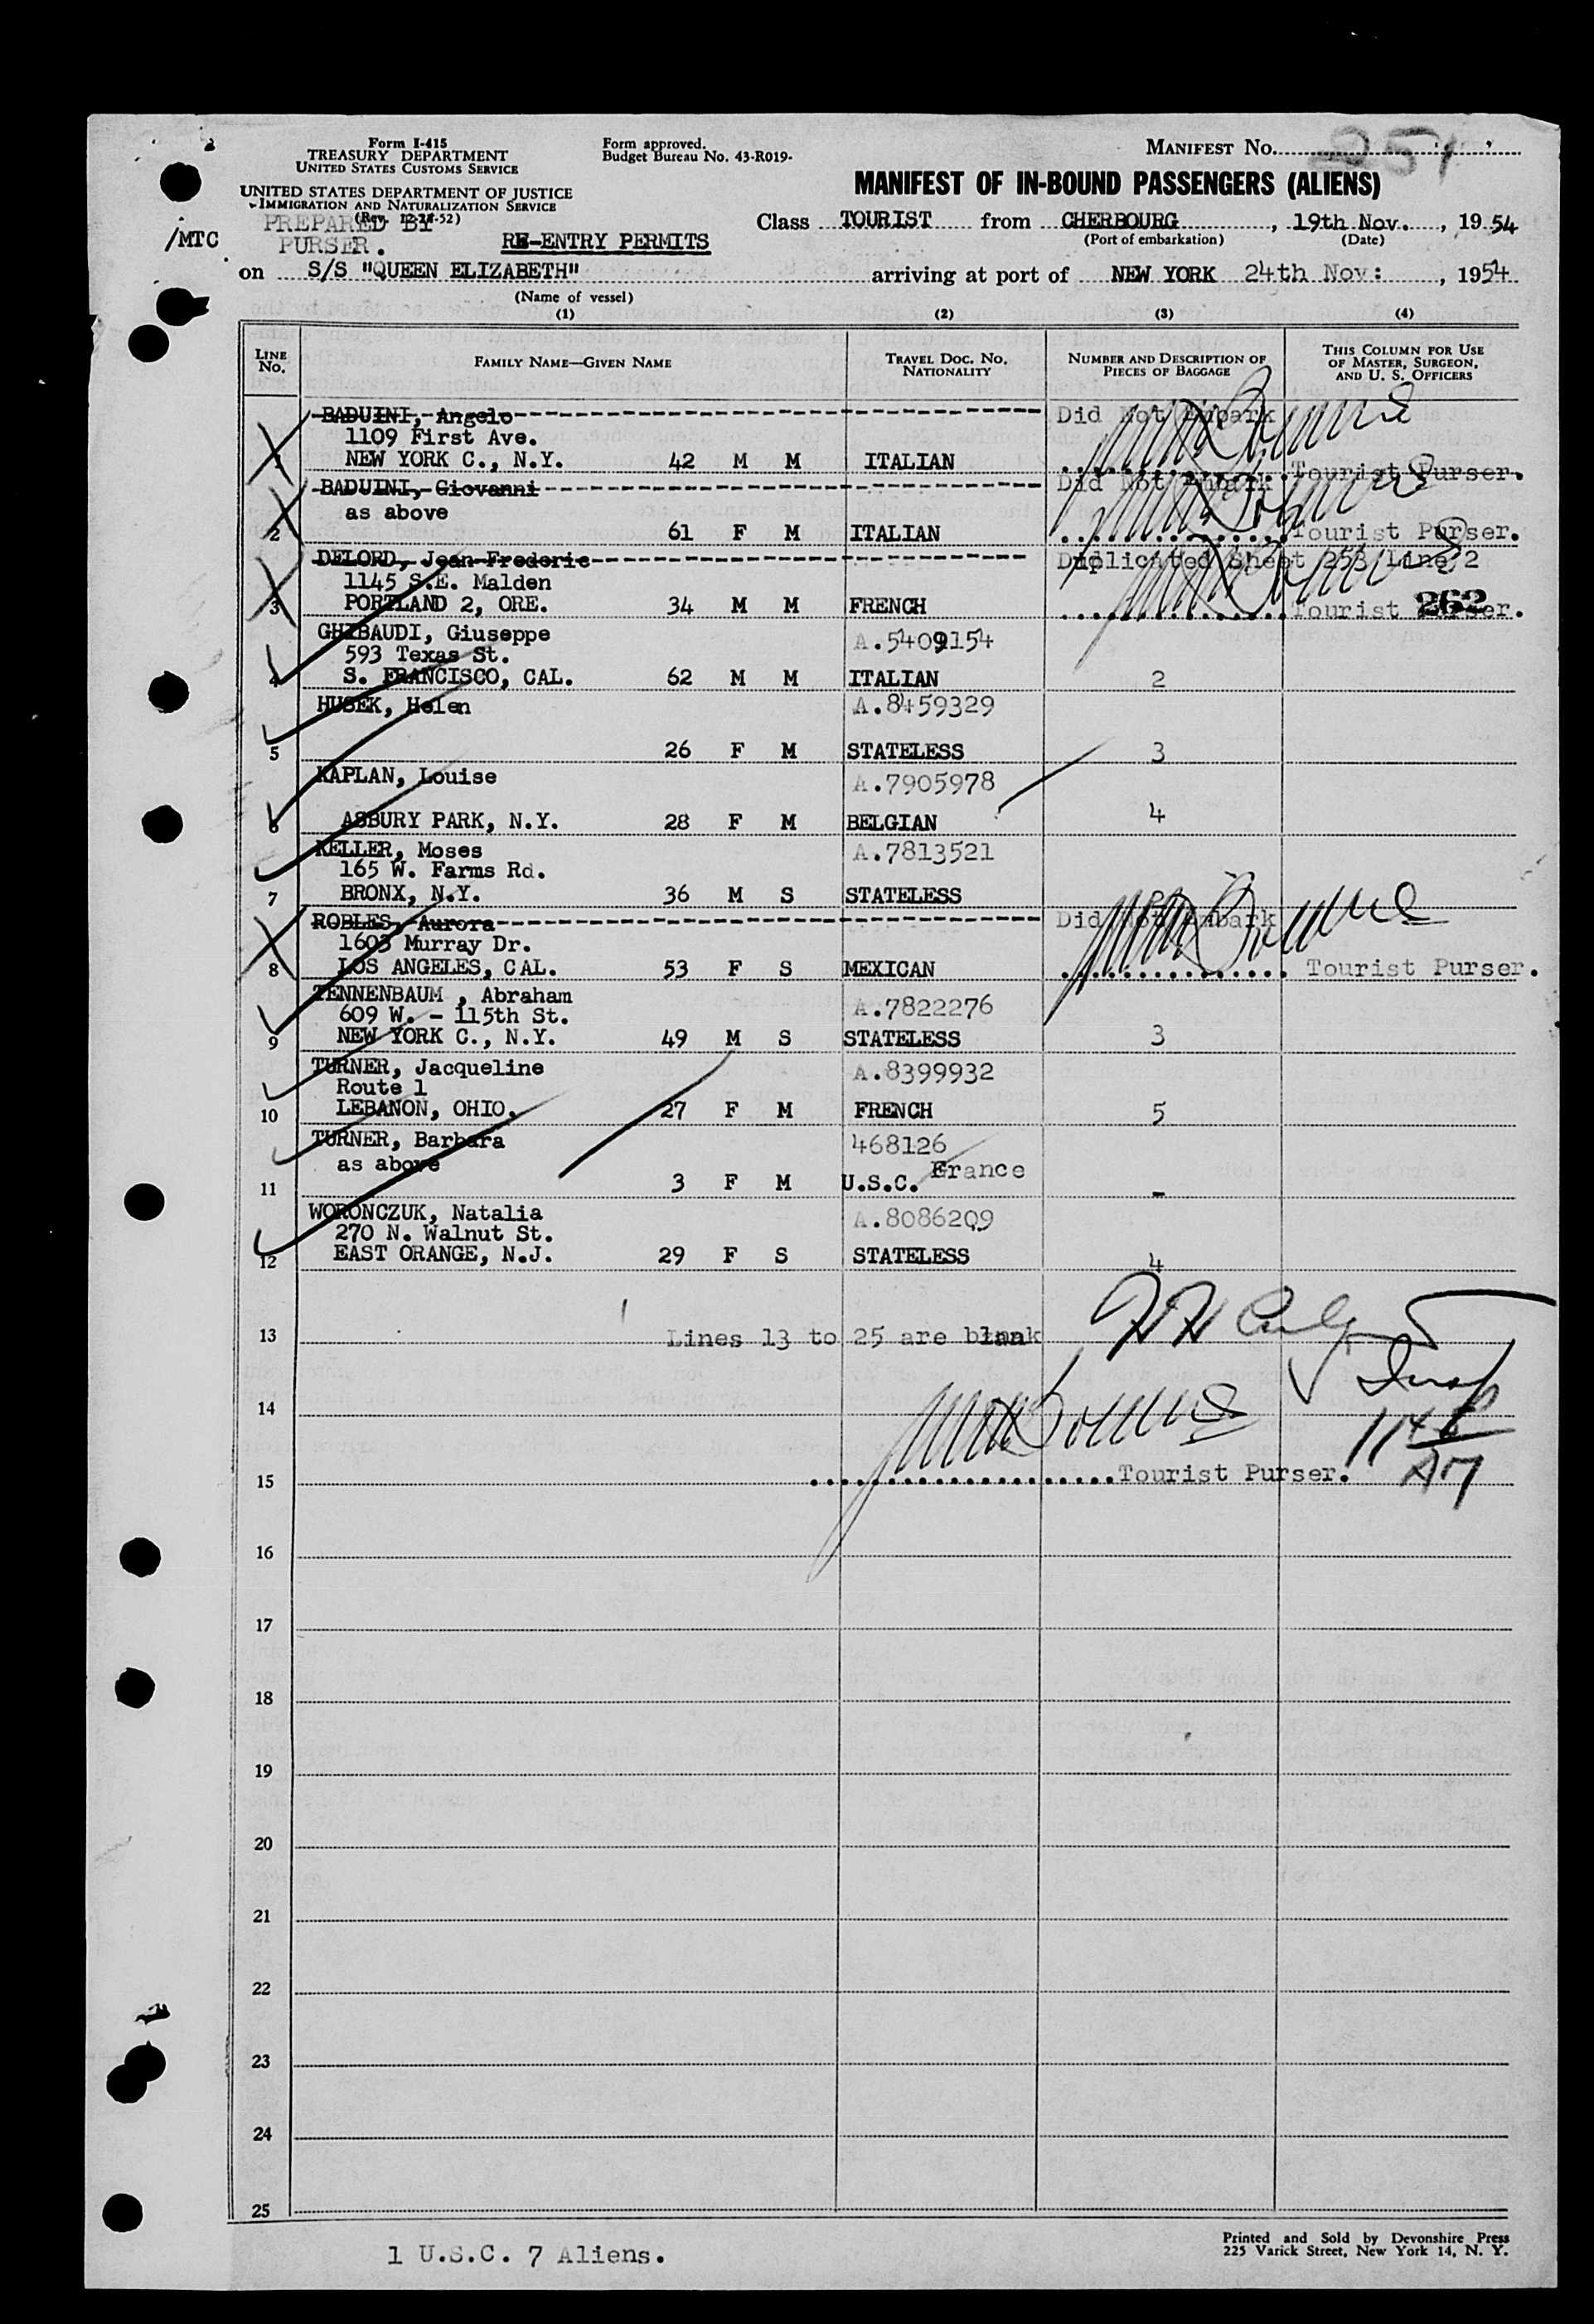 Form I-415
TREASURY DEPARTMENT
UNITED STATES CUSTOMS SERVICE
UNITED STATES DEPARTMENT OF JUSTICE
IMMIGRATION AND NATURALIZATION SERVICE
(Rev. 12-24-52)
PREPARED BY
PURSER.
/MTC
Form approved.
Budget Bureau No. 43-R019-
MANIFEST No. 251
MANIFEST OF IN-BOUND PASSENGERS (ALIENS)
Class TOURIST from CHERBOURG, 19th Nov., 1954
(Port of embarkation) (Date)
RE-ENTRY PERMITS
on S/S "QUEEN ELIZABETH" arriving at port of NEW YORK 24th Nov:, 1954
(Name of vessel)
(1) (2) (3) (4)
LINE No. FAMILY NAME—GIVEN NAME TRAVEL DOC. No. NATIONALITY NUMBER AND DESCRIPTION OF PIECES OF BAGGAGE THIS COLUMN FOR USE OF MASTER, SURGEON, AND U. S. OFFICERS
BADUINI, Angelo Did Not Embark
1109 First Ave.
1 NEW YORK C., N.Y. 42 M M ITALIAN Tourist Purser.
BADUINI, Giovanni Did Not Embark
as above
2 61 F M ITALIAN Tourist Purser.
DELORD, Jean Frederic Duplicated Sheet 253 Line 2
1145 S.E. Malden
3 PORTLAND 2, ORE. 34 M M FRENCH Tourist Purser. 262
GHIBAUDI, Giuseppe A.5409154
593 Texas St.
4 S. FRANCISCO, CAL. 62 M M ITALIAN 2
HUSEK, Helen A.8459329
5 26 F M STATELESS 3
KAPLAN, Louise A.7905978
6 ASBURY PARK, N.Y. 28 F M BELGIAN 4
KELLER, Moses A.7813521
165 W. Farms Rd.
7 BRONX, N.Y. 36 M S STATELESS
ROBLES, Aurora Did Not Embark
1603 Murray Dr.
8 LOS ANGELES, CAL. 53 F S MEXICAN Tourist Purser.
TENNENBAUM , Abraham A.7822276
609 W. - 115th St.
9 NEW YORK C., N.Y. 49 M S STATELESS 3
TURNER, Jacqueline A.8399932
Route 1
10 LEBANON, OHIO. 27 F M FRENCH 5
TURNER, Barbara 468126
as above France
11 3 F M U.S.C. -
WORONCZUK, Natalia A.8086209
270 N. Walnut St.
12 EAST ORANGE, N.J. 29 F S STATELESS 4
13 Lines 13 to 25 are blank
14
15 Tourist Purser.
16
17
18
19
20
21
22
23
24
25
1 U.S.C. 7 Aliens.
Printed and Sold by Devonshire Press
225 Varick Street, New York 14, N. Y.